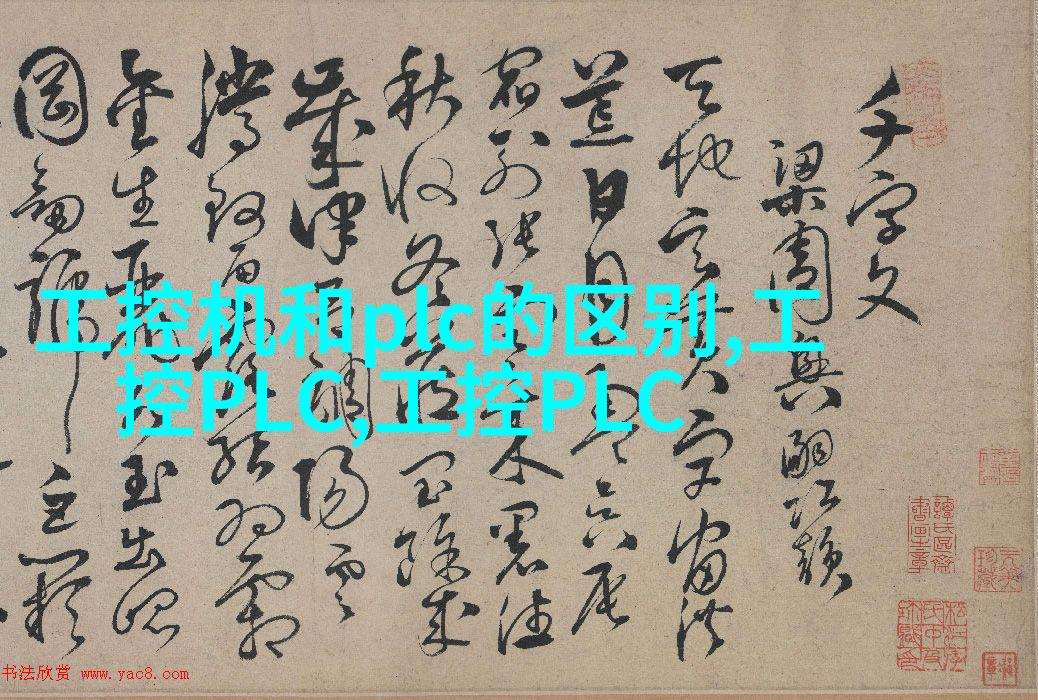 千字文
梁周興嗣次韻
天地玄黃宇宙洪
荒日月盈昃辰
宿列張寒來暑往
秋收冬藏閏餘成
歲律呂調陽雲
騰致雨露結為霜
金生麗水玉出崑
岡劍號巨闕
工控机和plc的区别,工
控PLC,工控PLC
书法欣赏 www.yac8.com